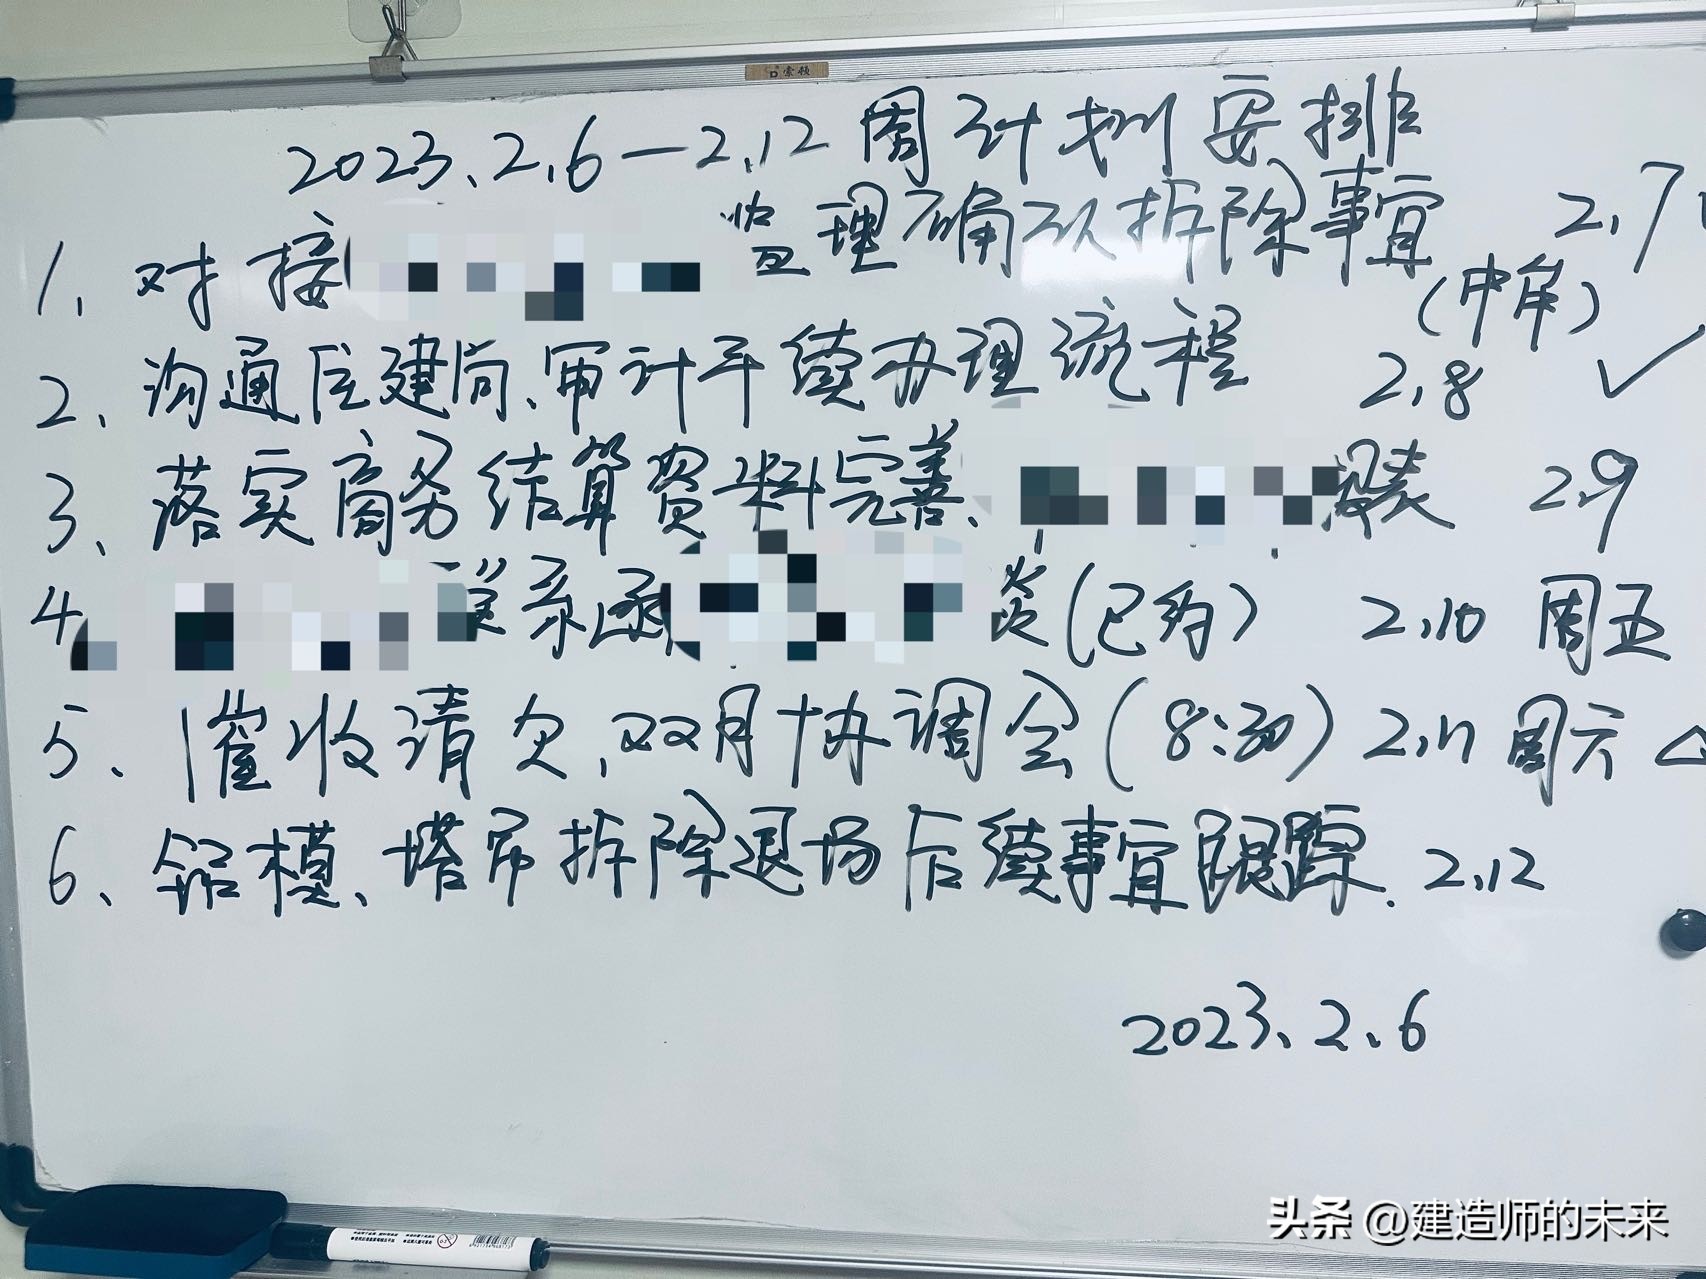 索顿
2023.2.6—2.12 周计划安排
1、对接 监理确认拆除事宜 2.7
(中午)
2、沟通住建局、审计手续办理流程 2.8 ✓
3、落实商务结算资料完善、 2.9
4、 联系函 (已约) 2.10 周五
5、催收清欠、双月协调会(8:30) 2.11 周六 △
6、铝模、塔吊拆除退场后续事宜跟踪. 2.12
2023.2.6
头条 @建造师的未来